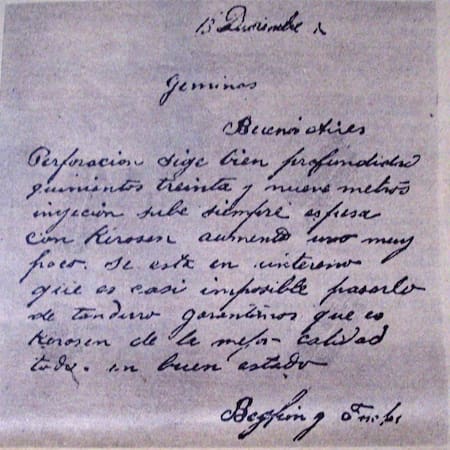 13 Diciembre
Geminas
Buenos Aires
Perforacion sige bien profundidad
quinientos treinta y nueve metros
injeción sube siempre espesa
con Kerosen aumento muy
poco. Se esta en un tereno
que es casi imposible pasarlo
de tan duro garantimos que es
Kerosen de la mejor calidad
todo. en buen estado
Beghin y Fuchs